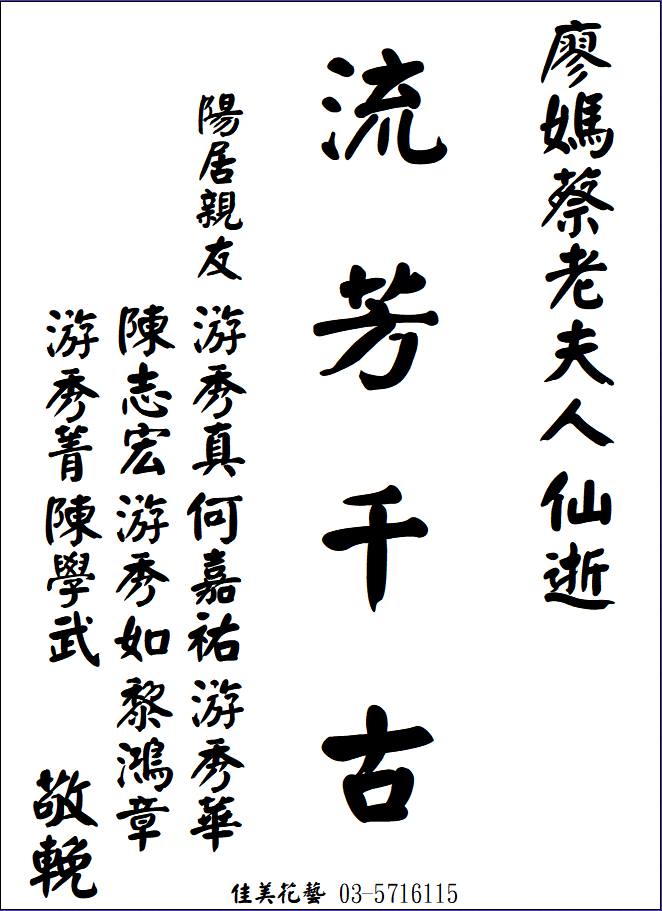 廖媽蔡老夫人仙逝
流芳千古
陽居親友 游秀真 何嘉祐 游秀華
陳志宏 游秀如 黎鴻章
游秀菁 陳學武 敬輓
佳美花藝 03-5716115